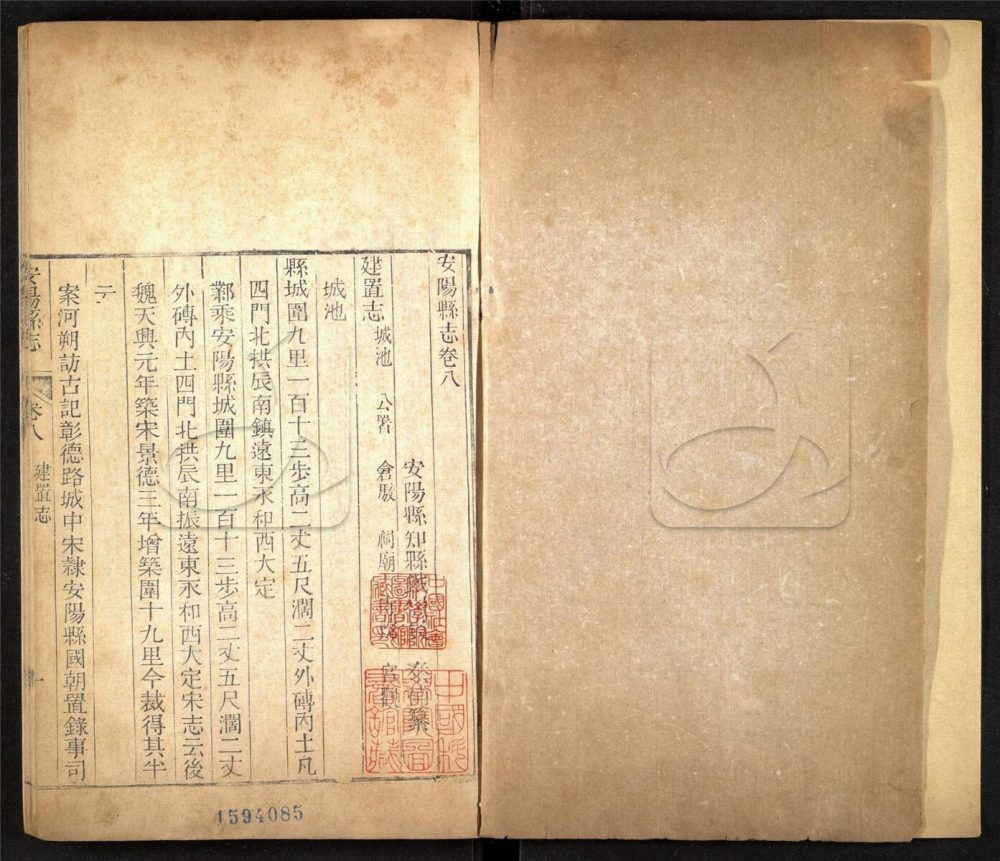 安陽縣志卷八
安陽縣知縣 泰 纂
建置志 城池 公署 倉廒 祠廟 宮觀
城池
縣城圍九里一百十三歩高二丈五尺濶二丈外磚內土凡
四門北拱辰南鎮遠東永和西大定
鄴乘安陽縣城圍九里一百十三歩高二丈五尺濶二丈
外磚內土四門北拱辰南振遠東永和西大定宋志云後
魏天興元年築宋景德三年增築圍十九里今裁得其半
云
案河朔訪古記彰德路城中宋隸安陽縣國朝置錄事司
安陽縣志
卷八 建置志
一
1594085